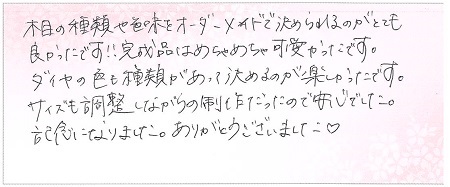 木目の種類や色味をオーダーメイドで決められるのがとても
良かったです!!完成品はめちゃめちゃ可愛かったです。
ダイヤの色も種類があって決めるのが楽しかったです。
サイズも調整しながらの制作だったので安心でした。
記念になりました。ありがとうございました♡